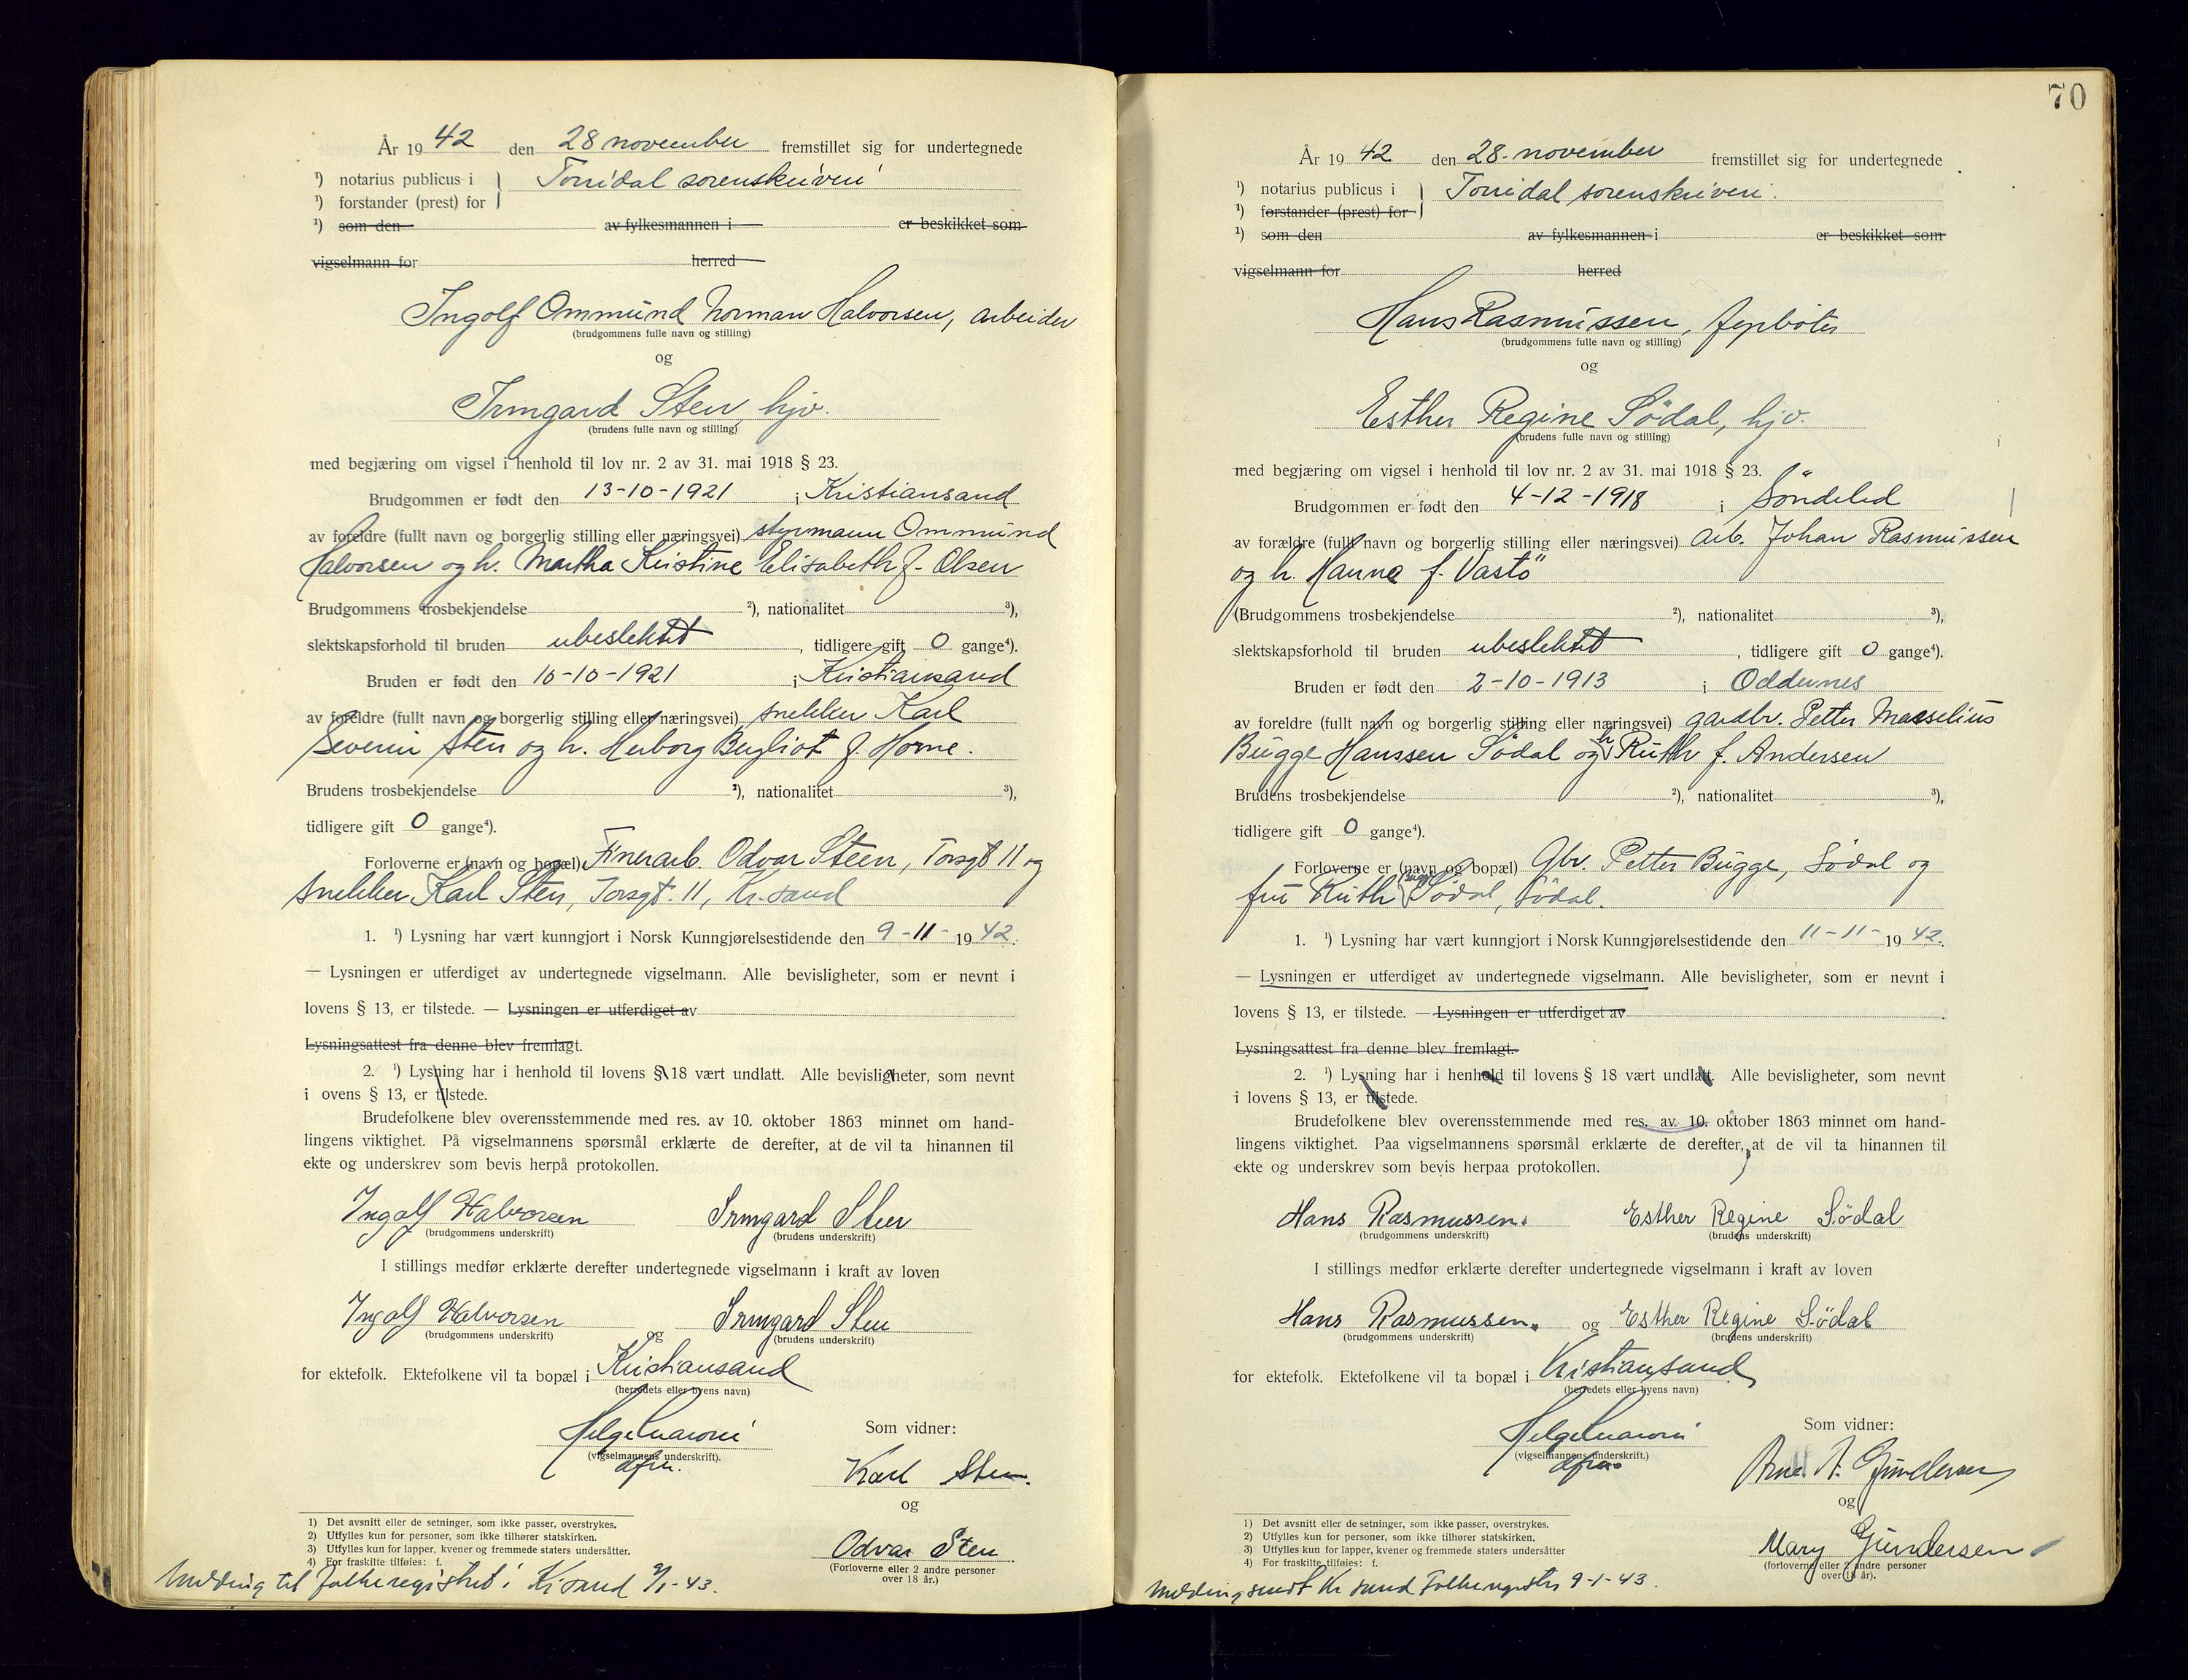 År 19 42 den 28 november fremstillet sig for undertegnede
¹) notarius publicus i } Torridal sorenskriveri
¹) forstander (prest) for
¹) som den av fylkesmannen i er beskikket som
vigselmann for herred
Ingolf Ommund Norman Halvorsen, arbeider
(brudgommens fulle navn og stilling)
og
Irmgard Sten, hjv.
(brudens fulle navn og stilling)
med begjæring om vigsel i henhold til lov nr. 2 av 31. mai 1918 § 23.
Brudgommen er født den 13-10-1921 i Kristiansand
av foreldre (fullt navn og borgerlig stilling eller næringsvei) styrmann Ommund
Halvorsen og h. Martha Kristine Elisabeth f. Olsen
Brudgommens trosbekjendelse ²), nationalitet ³),
slektskapsforhold til bruden ubeslektet, tidligere gift 0 gange⁴).
Bruden er født den 10-10-1921 i Kristiansand
av foreldre (fullt navn og borgerlig stilling eller næringsvei) snekker Karl
Severin Sten og h. Herborg Bergliot f. Horne.
Brudens trosbekjendelse ²), nationalitet ³),
tidligere gift 0 gange⁴).
Forloverne er (navn og bopæl) Finerarb. Odvar Steen, Torsgt 11 og
snekker Karl Sten, Torsgt. 11, Kr.sand
1. ¹) Lysning har vært kunngjort i Norsk Kunngjørelsestidende den 9-11- 19 42.
— Lysningen er utferdiget av undertegnede vigselmann. Alle bevisligheter, som er nevnt i
lovens § 13, er tilstede. — Lysningen er utferdiget av
Lysningsattest fra denne blev fremlagt.
2. ¹) Lysning har i henhold til lovens § 18 vært undlatt. Alle bevisligheter, som nevnt
i ovens § 13, er tilstede.
Brudefolkene blev overensstemmende med res. av 10. oktober 1863 minnet om hand-
lingens viktighet. På vigselmannens spørsmål erklærte de derefter, at de vil ta hinannen til
ekte og underskrev som bevis herpå protokollen.
Ingolf Halvorsen Irmgard Sten
(brudgommens underskrift) (brudens underskrift)
I stillings medfør erklærte derefter undertegnede vigselmann i kraft av loven
Ingolf Halvorsen og Irmgard Sten
(brudgommens underskrift) (brudens underskrift)
for ektefolk. Ektefolkene vil ta bopæl i Kristiansand
(herredets eller byens navn)
Som vidner:
(vigselmannens underskrift).
Karl Sten.
og
Odvar Sten
(Forloverne eller 2 andre personer
over 18 år.)
1) Det avsnitt eller de setninger, som ikke passer, overstrykes.
2) Utfylles kun for personer, som ikke tilhører statskirken.
3) Utfylles kun for lapper, kvener og fremmede staters undersåtter.
4) For fraskilte tilføies: f.
Melding til folkeregistret i Kr.sand 9/1-43.
70
År 19 42 den 28. november fremstillet sig for undertegnede
¹) notarius publicus i } Torridal sorenskriveri.
¹) forstander (prest) for
¹) som den av fylkesmannen i er beskikket som
vigselmann for herred
Hans Rasmussen, fyrbøter
(brudgommens fulle navn og stilling)
og
Esther Regine Södal, hjv.
(brudens fulle navn og stilling)
med begjæring om vigsel i henhold til lov nr. 2 av 31. mai 1918 § 23.
Brudgommen er født den 4-12-1918 i Söndeled
av forældre (fullt navn og borgerlig stilling eller næringsvei) arb. Johan Rasmussen
og h. Hanna f. Vastö
(Brudgommens trosbekjendelse ²), nationalitet ³),
slektskapsforhold til bruden ubeslektet, tidligere gift 0 gange⁴).
Bruden er født den 2-10-1913 i Oddernes
av foreldre (fullt navn og borgerlig stilling eller næringsvei) gardbr. Petter Marselius
Bugge Hanssen Södal og h. Ruth f. Andersen
Brudens trosbekjendelse ²), nationalitet ³),
tidligere gift 0 gange⁴).
Forloverne er (navn og bopæl) Gbr. Petter Bugge, Södal og
fru Ruth Bugge Södal, Södal.
1. ¹) Lysning har vært kunngjort i Norsk Kunngjørelsestidende den 11-11- 19 42.
— Lysningen er utferdiget av undertegnede vigselmann. Alle bevisligheter, som er nevnt i
lovens § 13, er tilstede. — Lysningen er utferdiget av
Lysningsattest fra denne blev fremlagt.
2. ¹) Lysning har i henhold til lovens § 18 vært undlatt. Alle bevisligheter, som nevnt
i lovens § 13, er tilstede.
Brudefolkene blev overensstemmende med res. av 10. oktober 1863 minnet om hand-
lingens viktighet. Paa vigselmannens spørsmål erklærte de derefter, at de vil ta hinannen til
ekte og underskrev som bevis herpaa protokollen.
Hans Rasmussen. Esther Regine Södal
(brudgommens underskrift) (brudens underskrift)
I stillings medfør erklærte derefter undertegnede vigselmann i kraft av loven
Hans Rasmussen. og Esther Regine Södal
(brudgommens underskrift) (brudens underskrift)
for ektefolk. Ektefolkene vil ta bopæl i Kristiansand
(herredets eller byens navn)
Som vidner:
(vigselmannens underskrift.)
Arne A. Gundersen
og
Mary Gundersen
(forloverne eller 2 andre personer
over 18 år).
1) Det avsnitt eller de setninger, som ikke passer, overstrykes.
2) Utfylles kun for personer, som ikke tilhører statskirken.
3) Utfylles kun for lapper, kvener og fremmede staters undersåtter
4) For fraskilte tilføies: f.
Melding sendt Kr.sand Folkeregister 9-1-43.